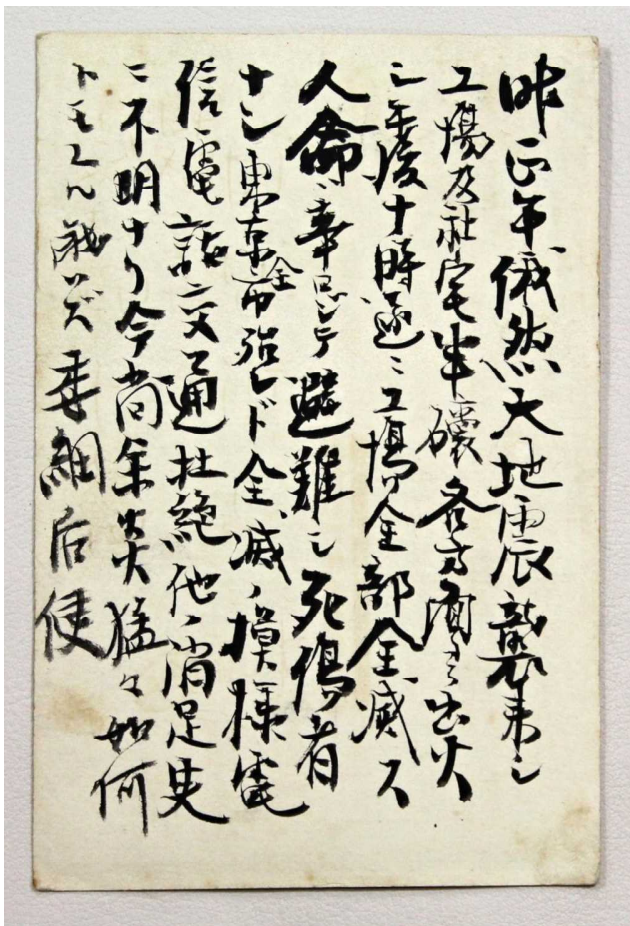 昨正午俄然大地震襲来シ
工場及社宅半壊各方面ヨリ出火
シ午後十時遂ニ工場全部全滅ス
人命ハ幸ニシテ避難シ死傷者
ナシ東京全市殆レド全滅ノ模様電
信電話交通杜絶他ノ消足更
ニ不明ナリ今尚余炎猛々如何
トモ 委細后便